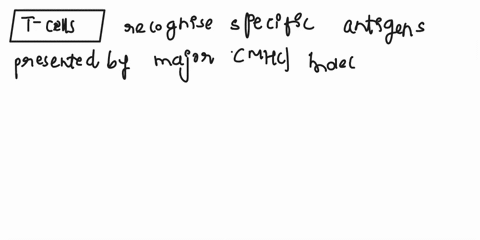 T-cells recognise specific antigens
presented by major (MHC)